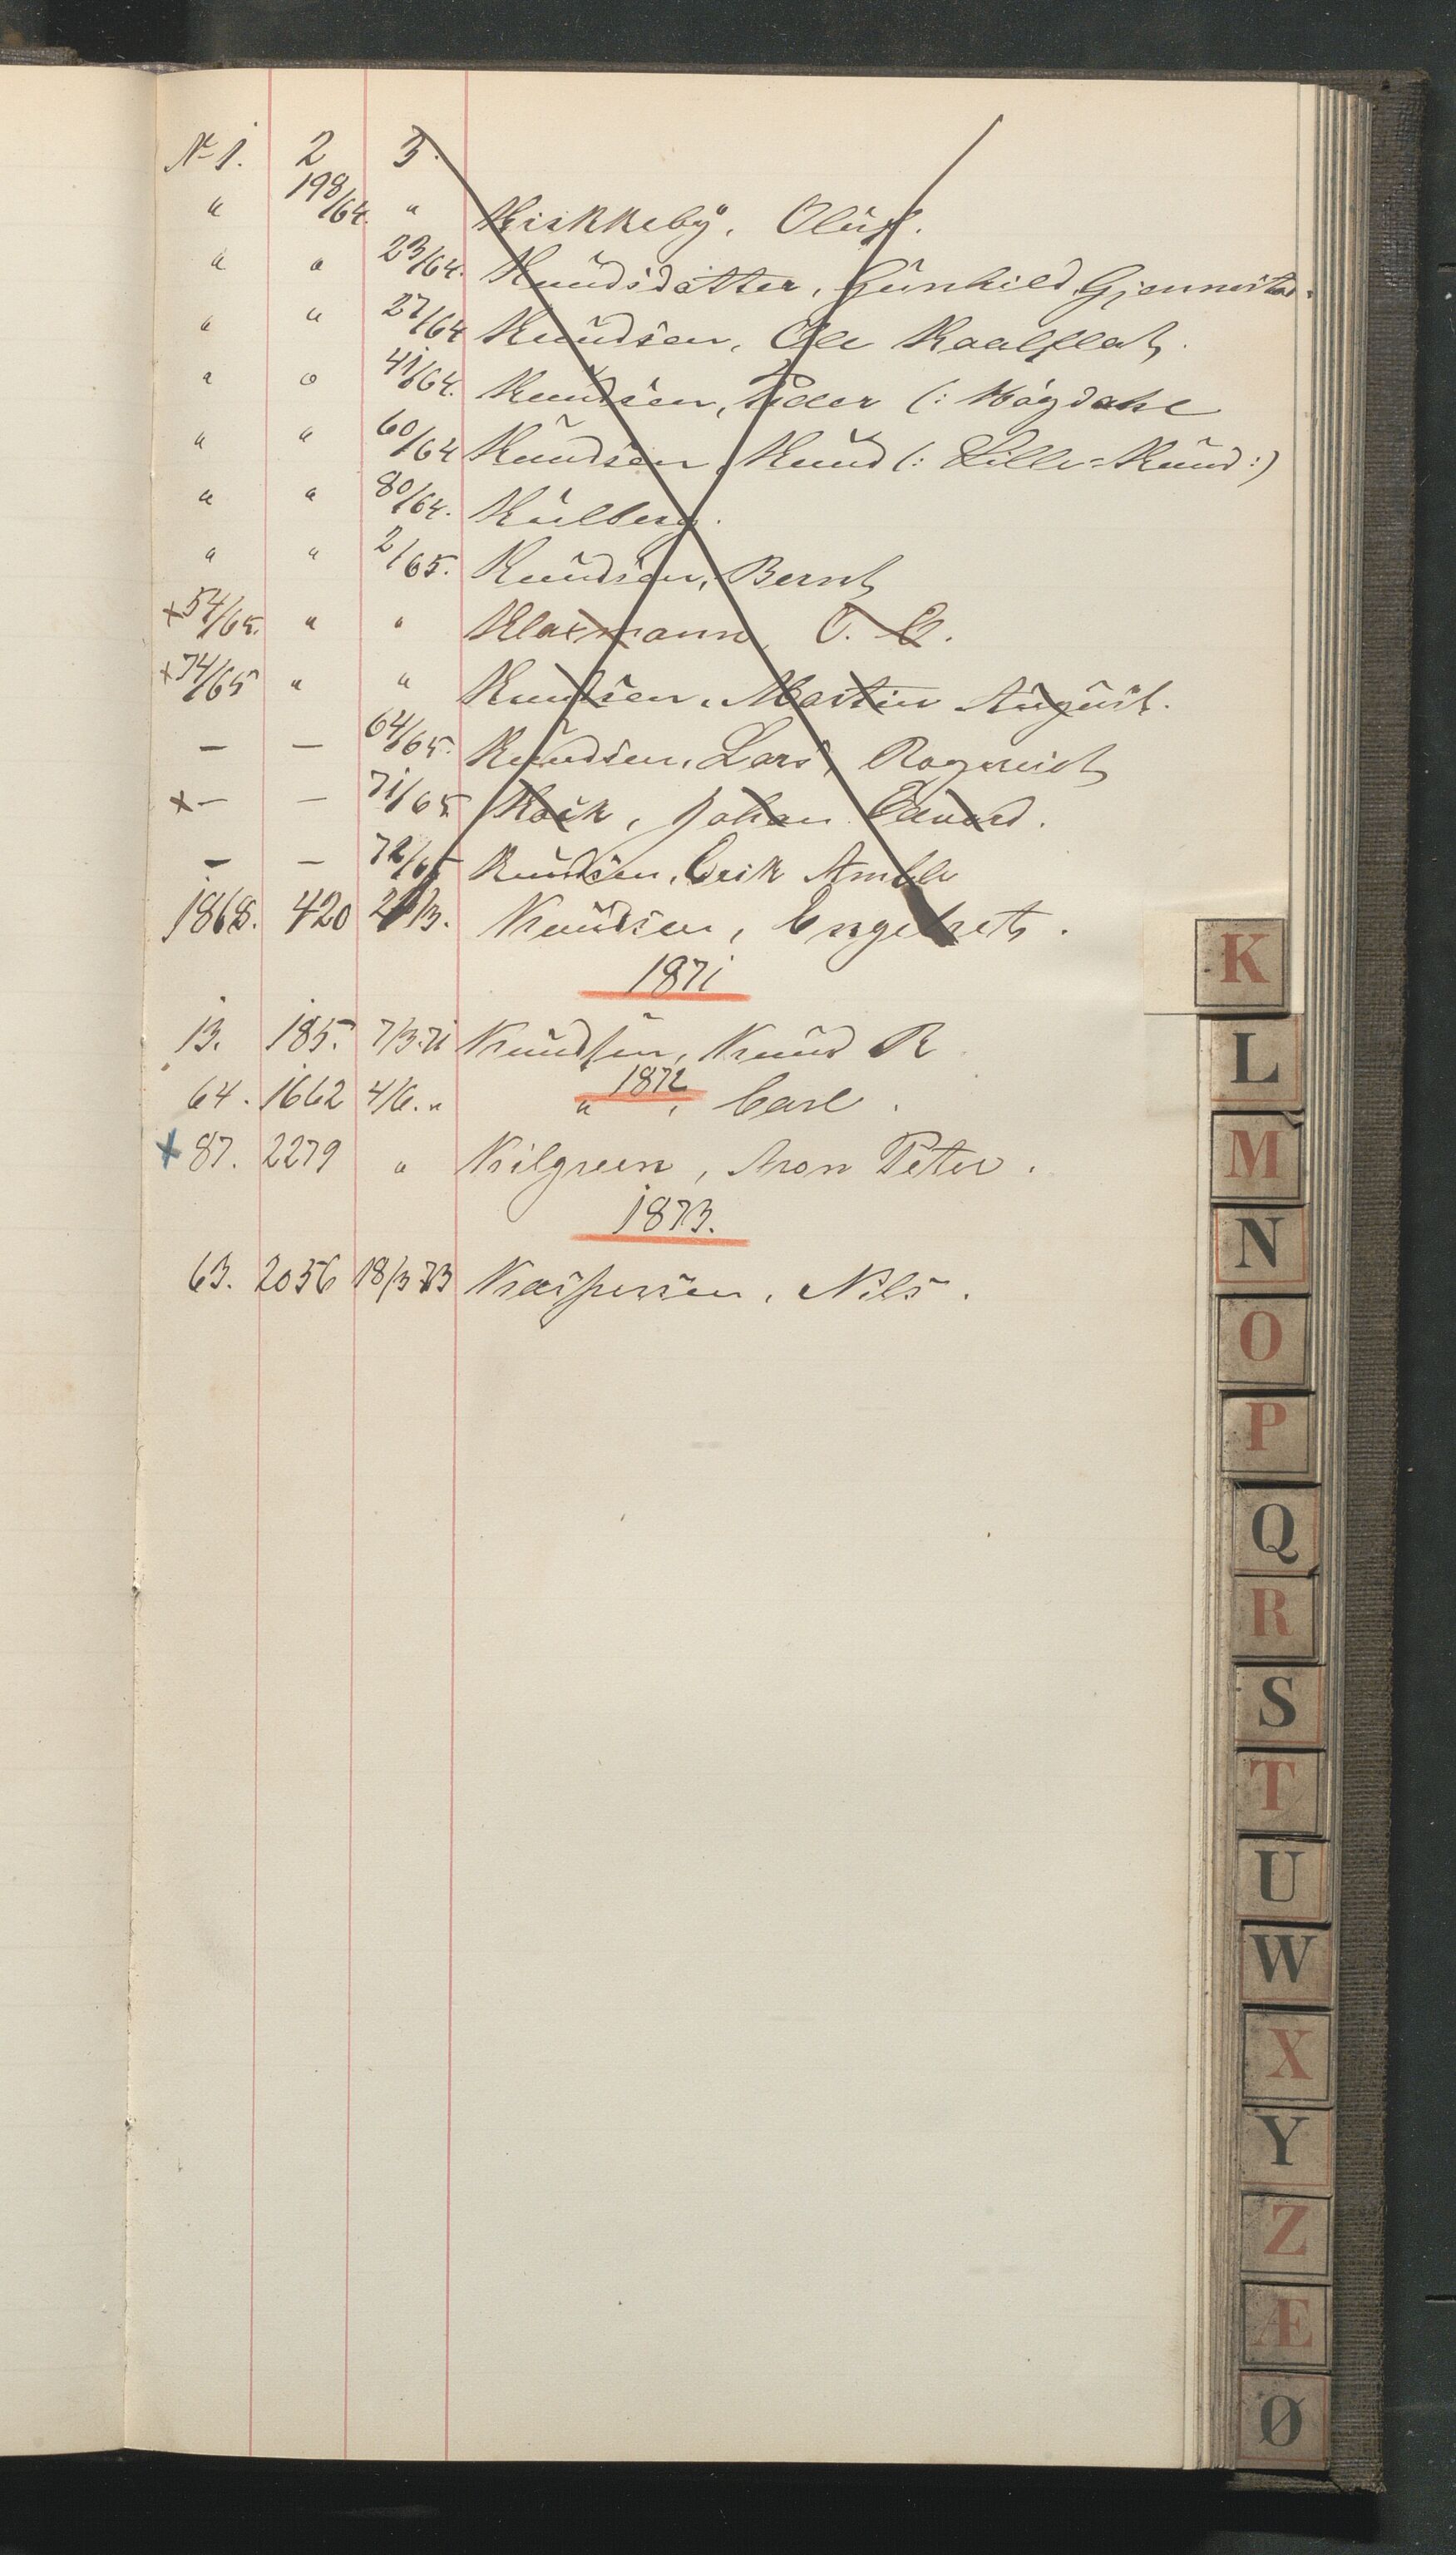 No 1. 2 3.
" 198/64. " Kirkkeby, Oluf.
" " 23/64. Knudsdatter, Gunhild Gjennestad.
" " 27/64 Knudsen, Ole Kaalflat.
" " 41/64. Knudsen, Peder (: Høgdahl
" " 60/64 Knudsen, Knud (: Lille-Knud :)
" " 80/64. Kulberg.
" " 2/65. Knudsen, Bernt
x 54/65. " " Klaxmann,
x 74/65 " " Knudsen, Martin August.
— — 64/65. Knudsen, Lars,
x — — 71/65 Kock, Johan Edvard.
— — 72/65 Knudsen, Erik Amble
1868. 420 Knudsen, Engebret.
1871
13. 185. 7/3.71 Knudsen, Knud R
1872
64. 1662 4/6. " " , Carl.
x 87. 2279 " Kilgreen, Aron Peter.
1873.
63. 2056 18/3 73 Kaspersen, Nils.
K
L
M
N
O
P
Q
R
S
T
U
W
X
Y
Z
Æ
Ø